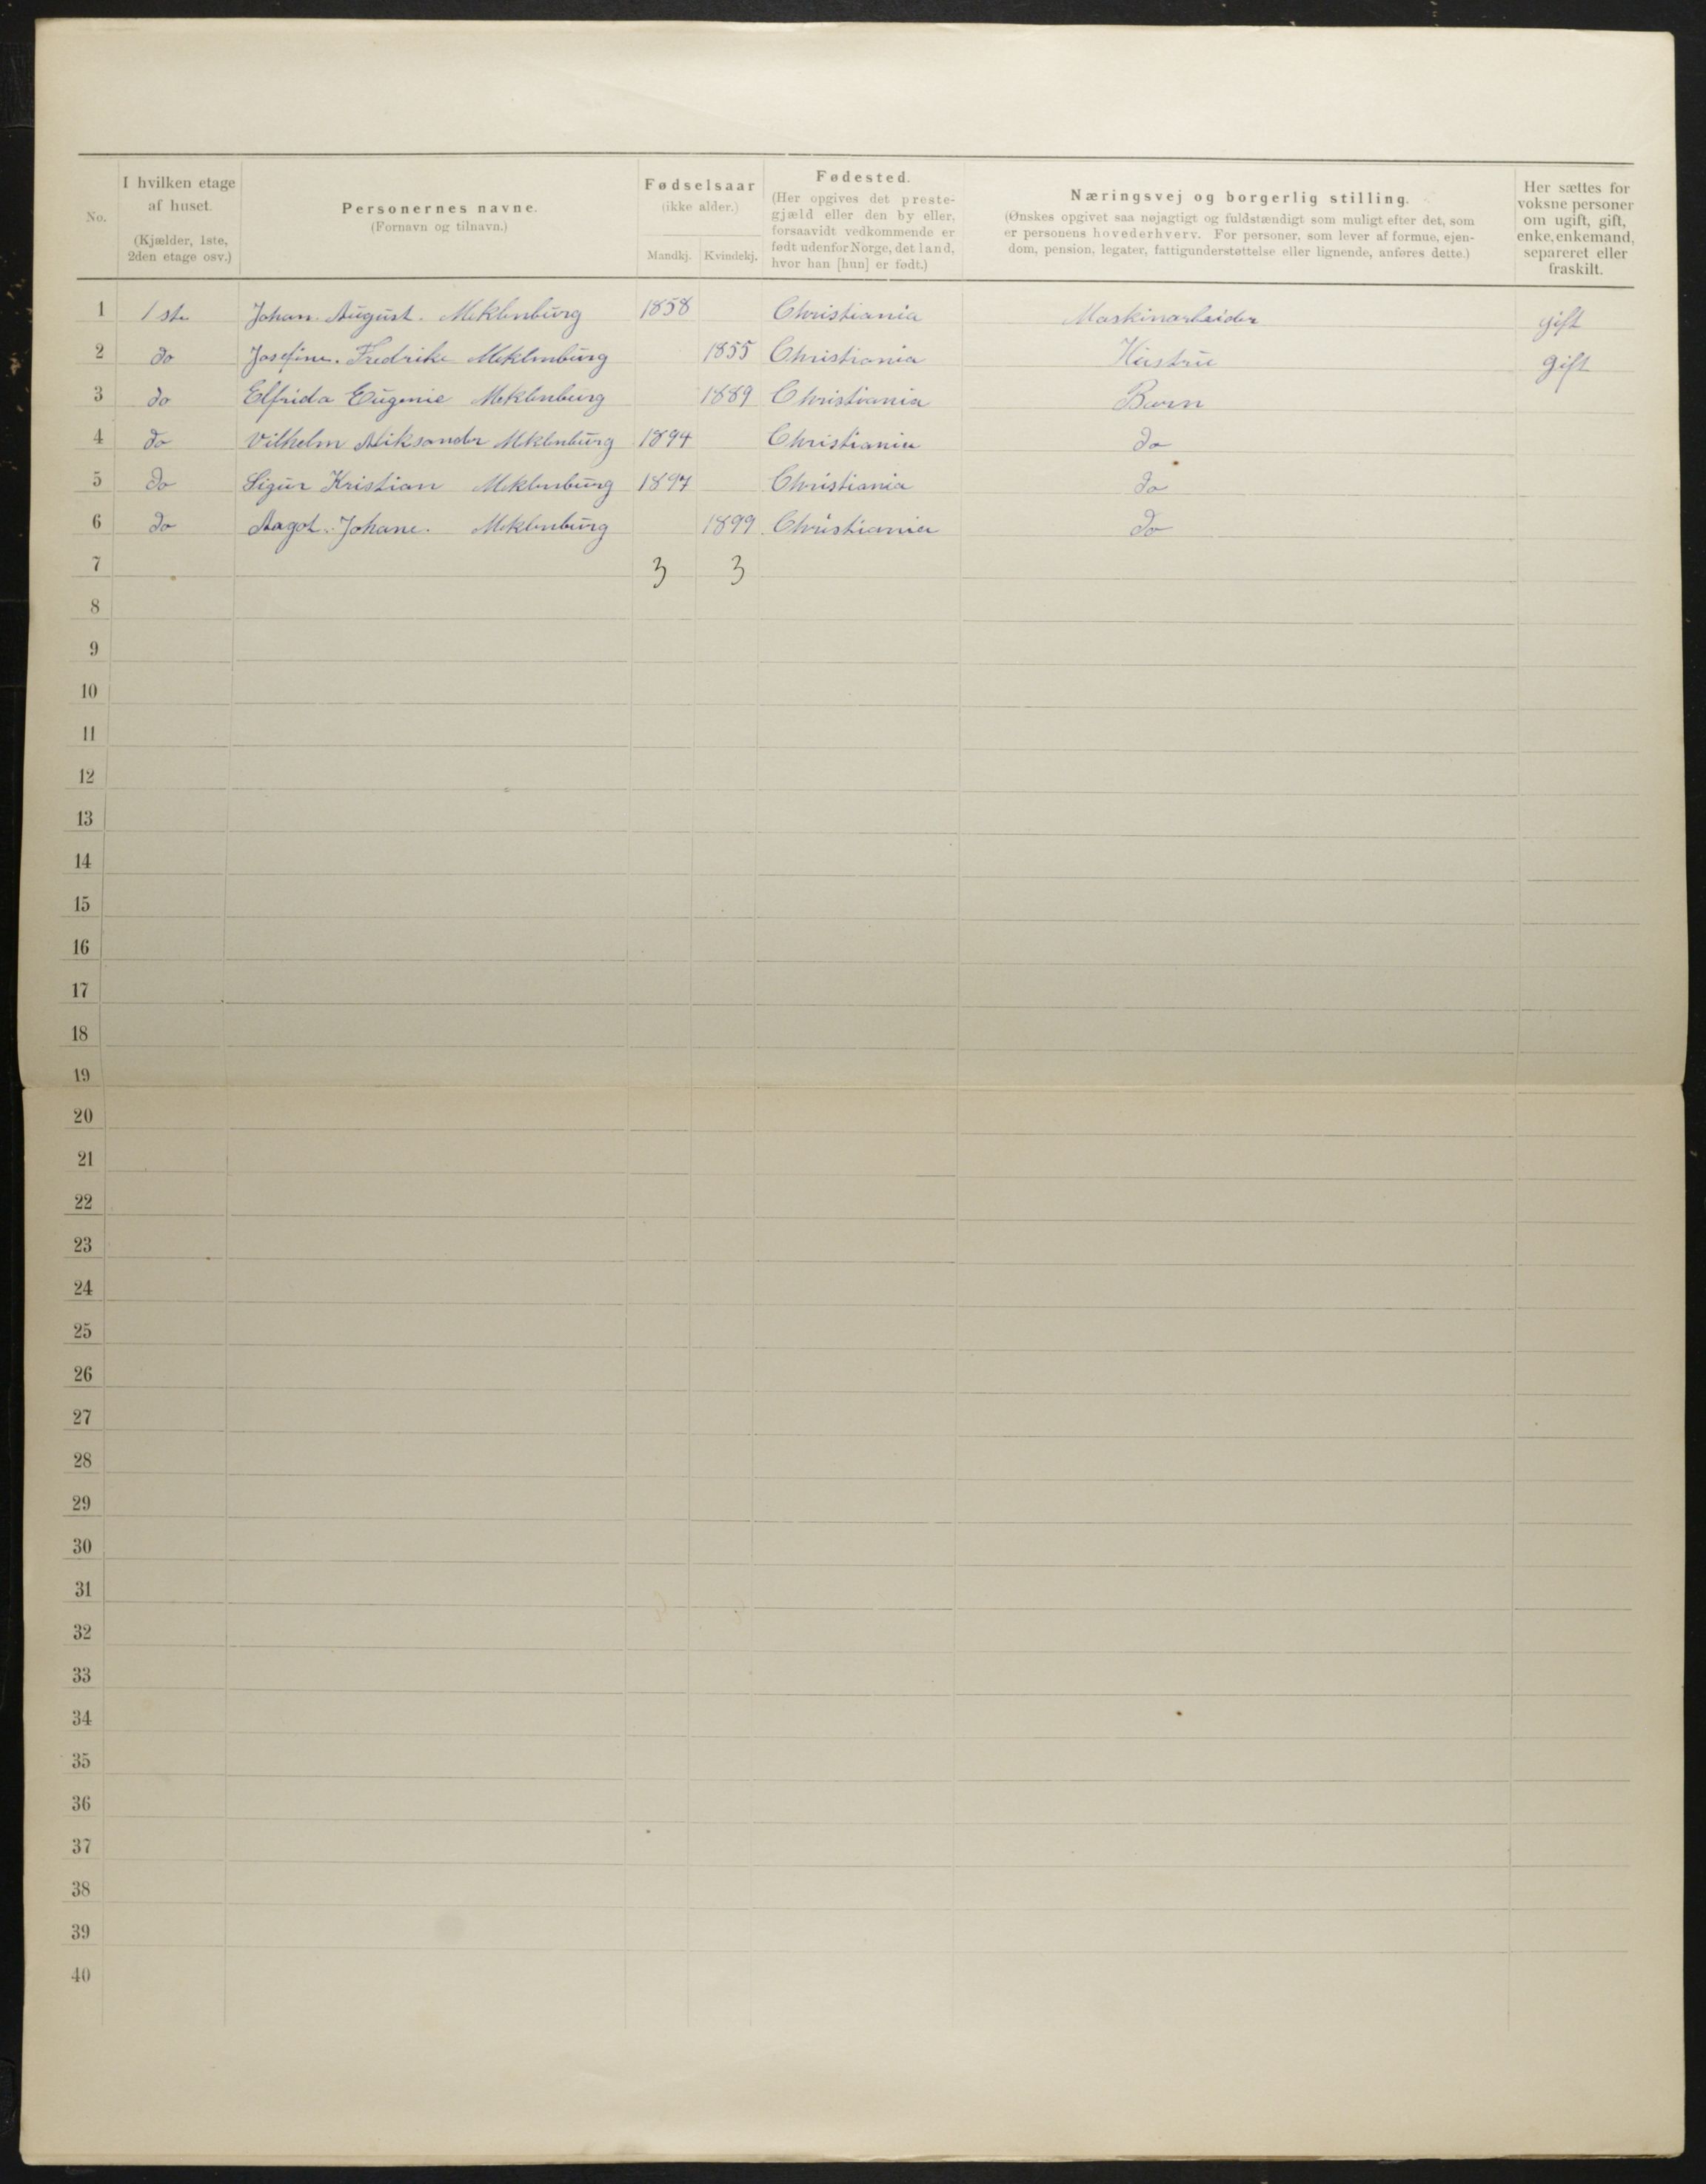 No.
I hvilken etage
af huset.
(Kjælder, 1ste,
2den etage osv.)
Personernes navne.
(Fornavn og tilnavn.)
Fødselsaar
(ikke alder.)
Mandkj. Kvindekj.
Fødested.
(Her opgives det preste-
gjæld eller den by eller,
forsaavidt vedkommende er
født udenfor Norge, det land,
hvor han [hun] er født.)
Næringsvej og borgerlig stilling.
(Ønskes opgivet saa nøjagtigt og fuldstændigt som muligt efter det, som
er personens hovederhverv. For personer, som lever af formue, ejen-
dom, pension, legater, fattigunderstøttelse eller lignende, anføres dette.)
Her sættes for
voksne personer
om ugift, gift,
enke, enkemand,
separeret eller
fraskilt.
1 1ste Johan August. Meklenburg 1858 Christiania Maskinarbeider gift
2 do Josefine. Fredrike Meklenburg 1855 Christiania Hustru gift
3 do Elfrida Eugenie Meklenburg 1889 Christiania Barn
4 do Vilhelm Aliksander Meklenburg 1894 Christiania do
5 do Sigur Kristian Meklenburg 1897 Christiania do
6 do Aagot. Johane. Meklenburg 1899 Christiania do
7 3 3
8
9
10
11
12
13
14
15
16
17
18
19
20
21
22
23
24
25
26
27
28
29
30
31
32
33
34
35
36
37
38
39
40